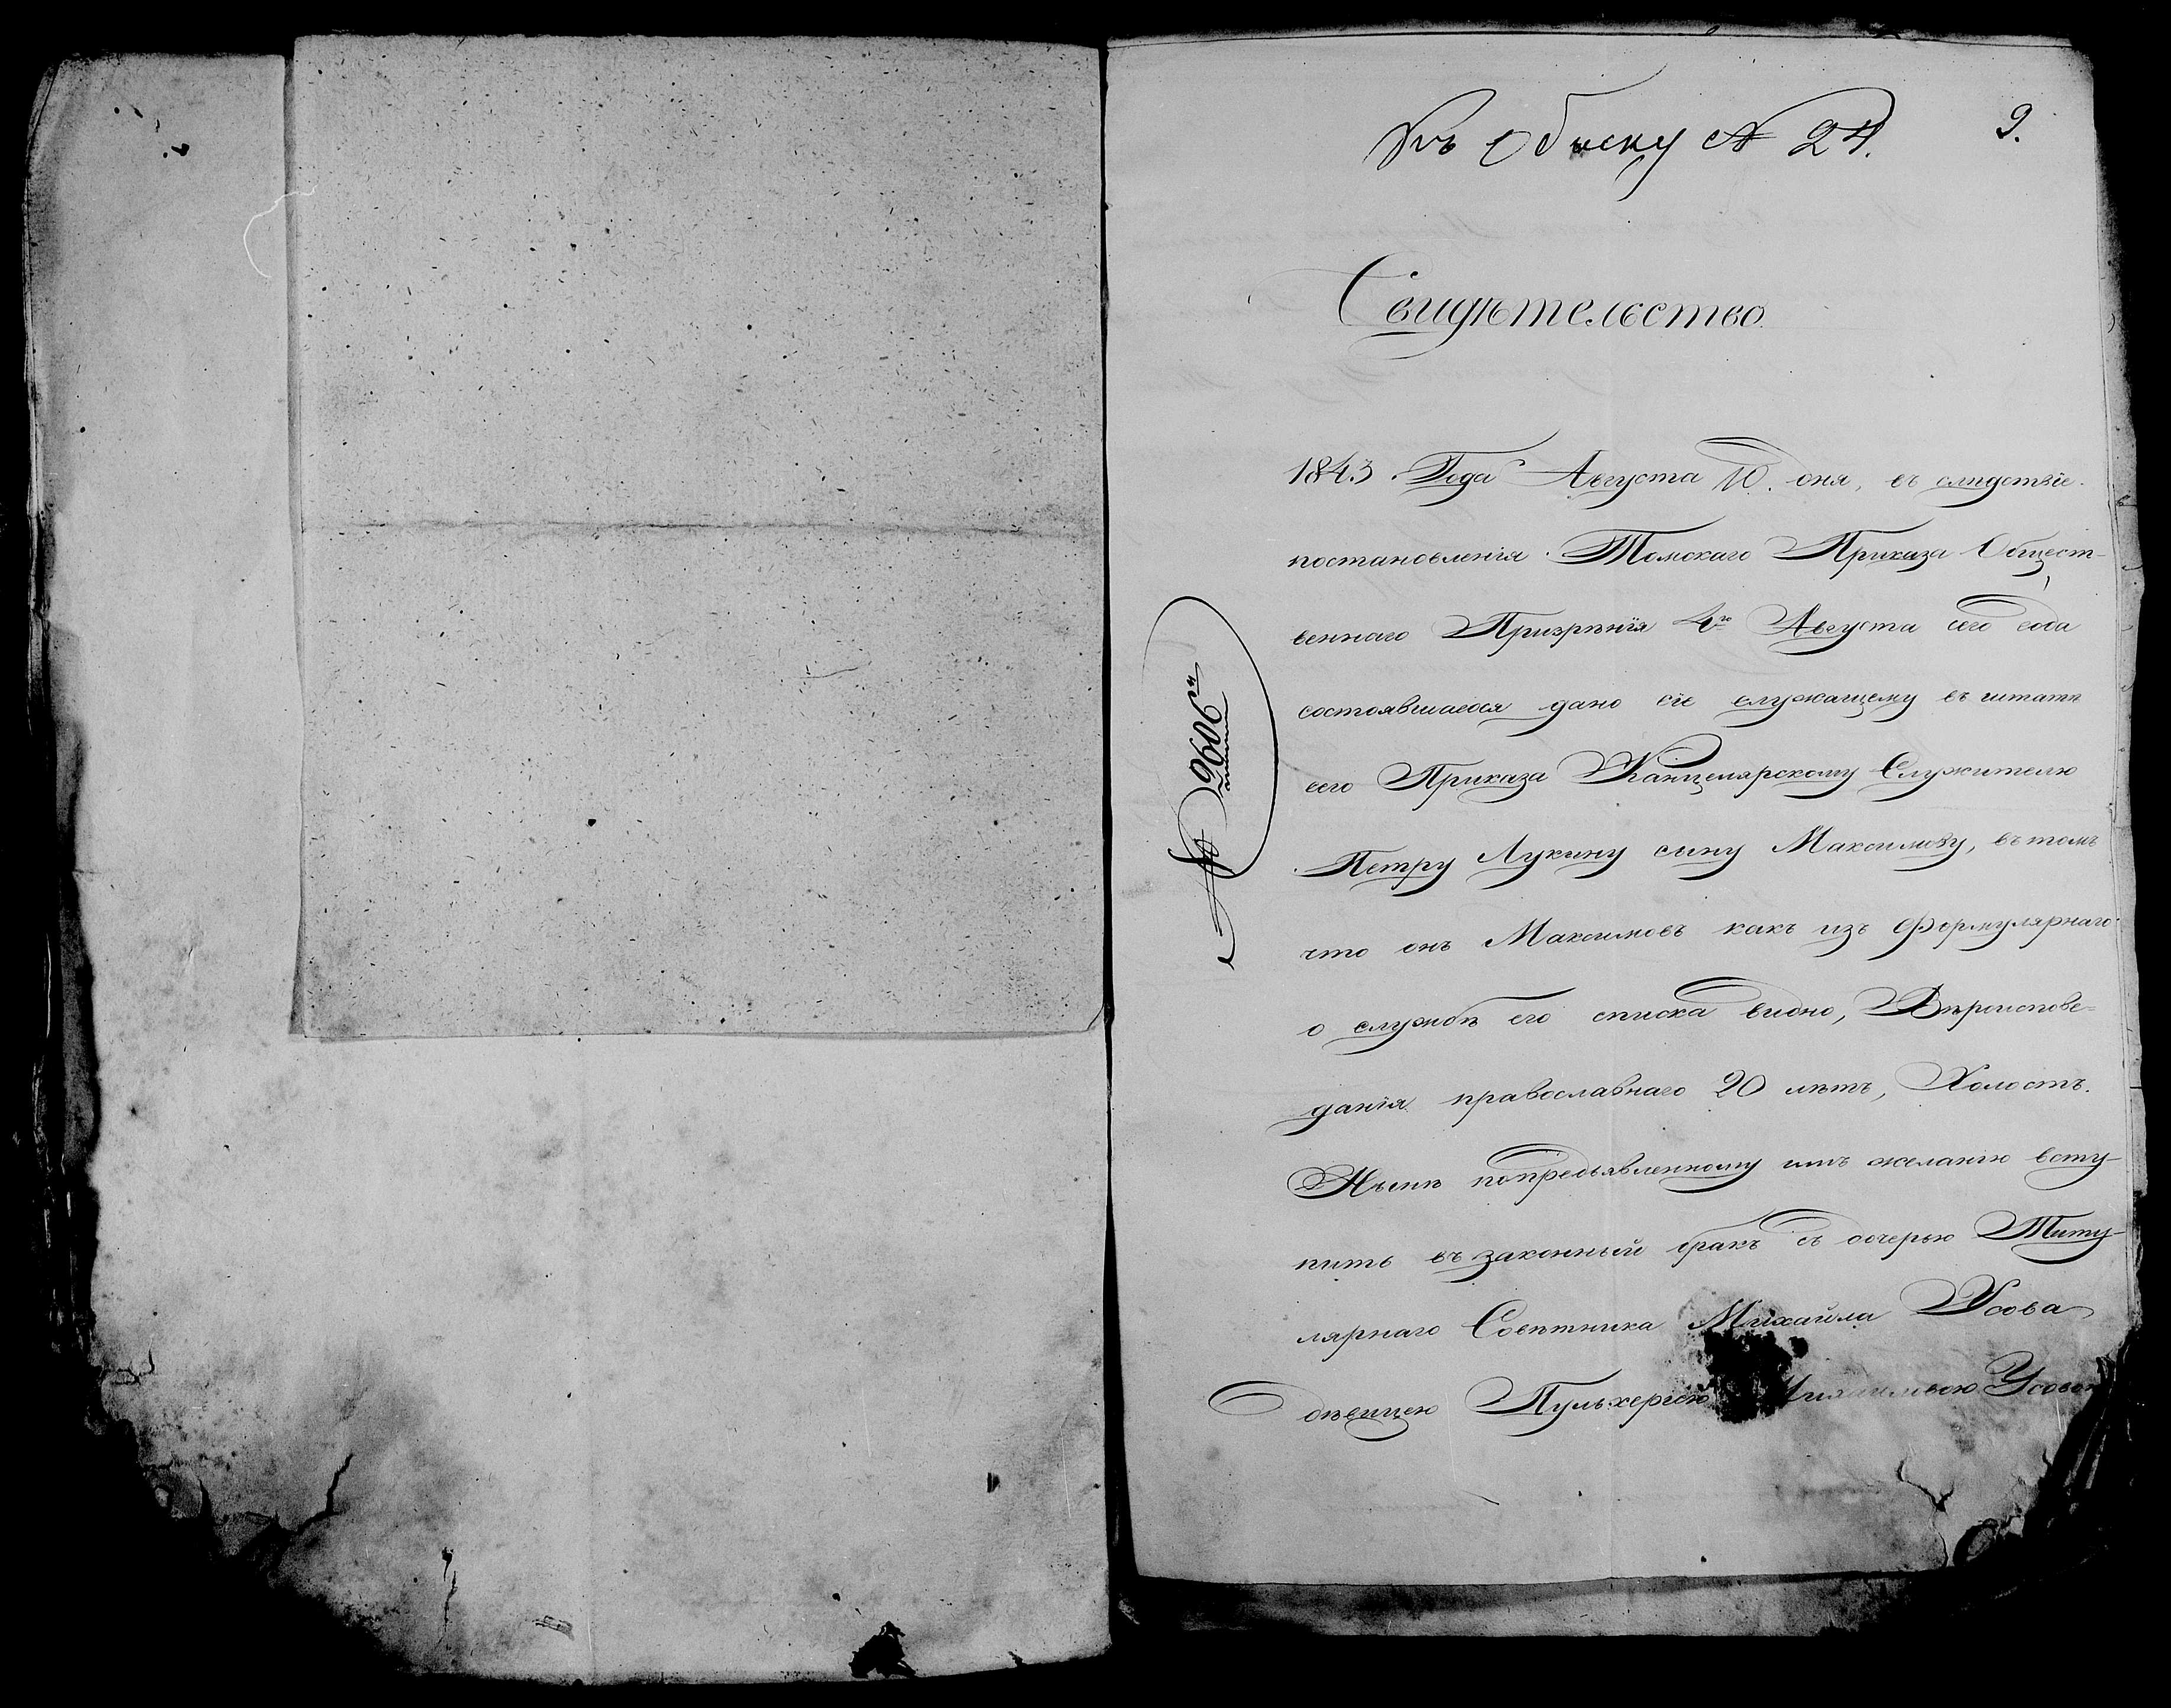 Къ обыску № 24.
9.
Свидѣтельство.
1843 Года Августа 10. дня, въ слѣдствіе
постановленія Томскаго Приказа Общест-
веннаго Призрѣнія 4го Августа сего года
состоявшагося дано сіе служащему въ штатѣ
сего Приказа Канцелярскому Служителю
Петру Лукину сыну Максимову, въ томъ
что онъ Максимовъ какъ изъ формулярнаго
о службѣ его списка видно, Вѣроисповѣ-
данія православнаго 20 лѣтъ, Холостъ.
Нынѣ попредъявленному имъ желанію всту-
пить въ законный бракъ съ дочерью Титу-
лярнаго Совѣтника Михаила Усова
дѣвицею Пульхеріею Усовой
№ 9606й